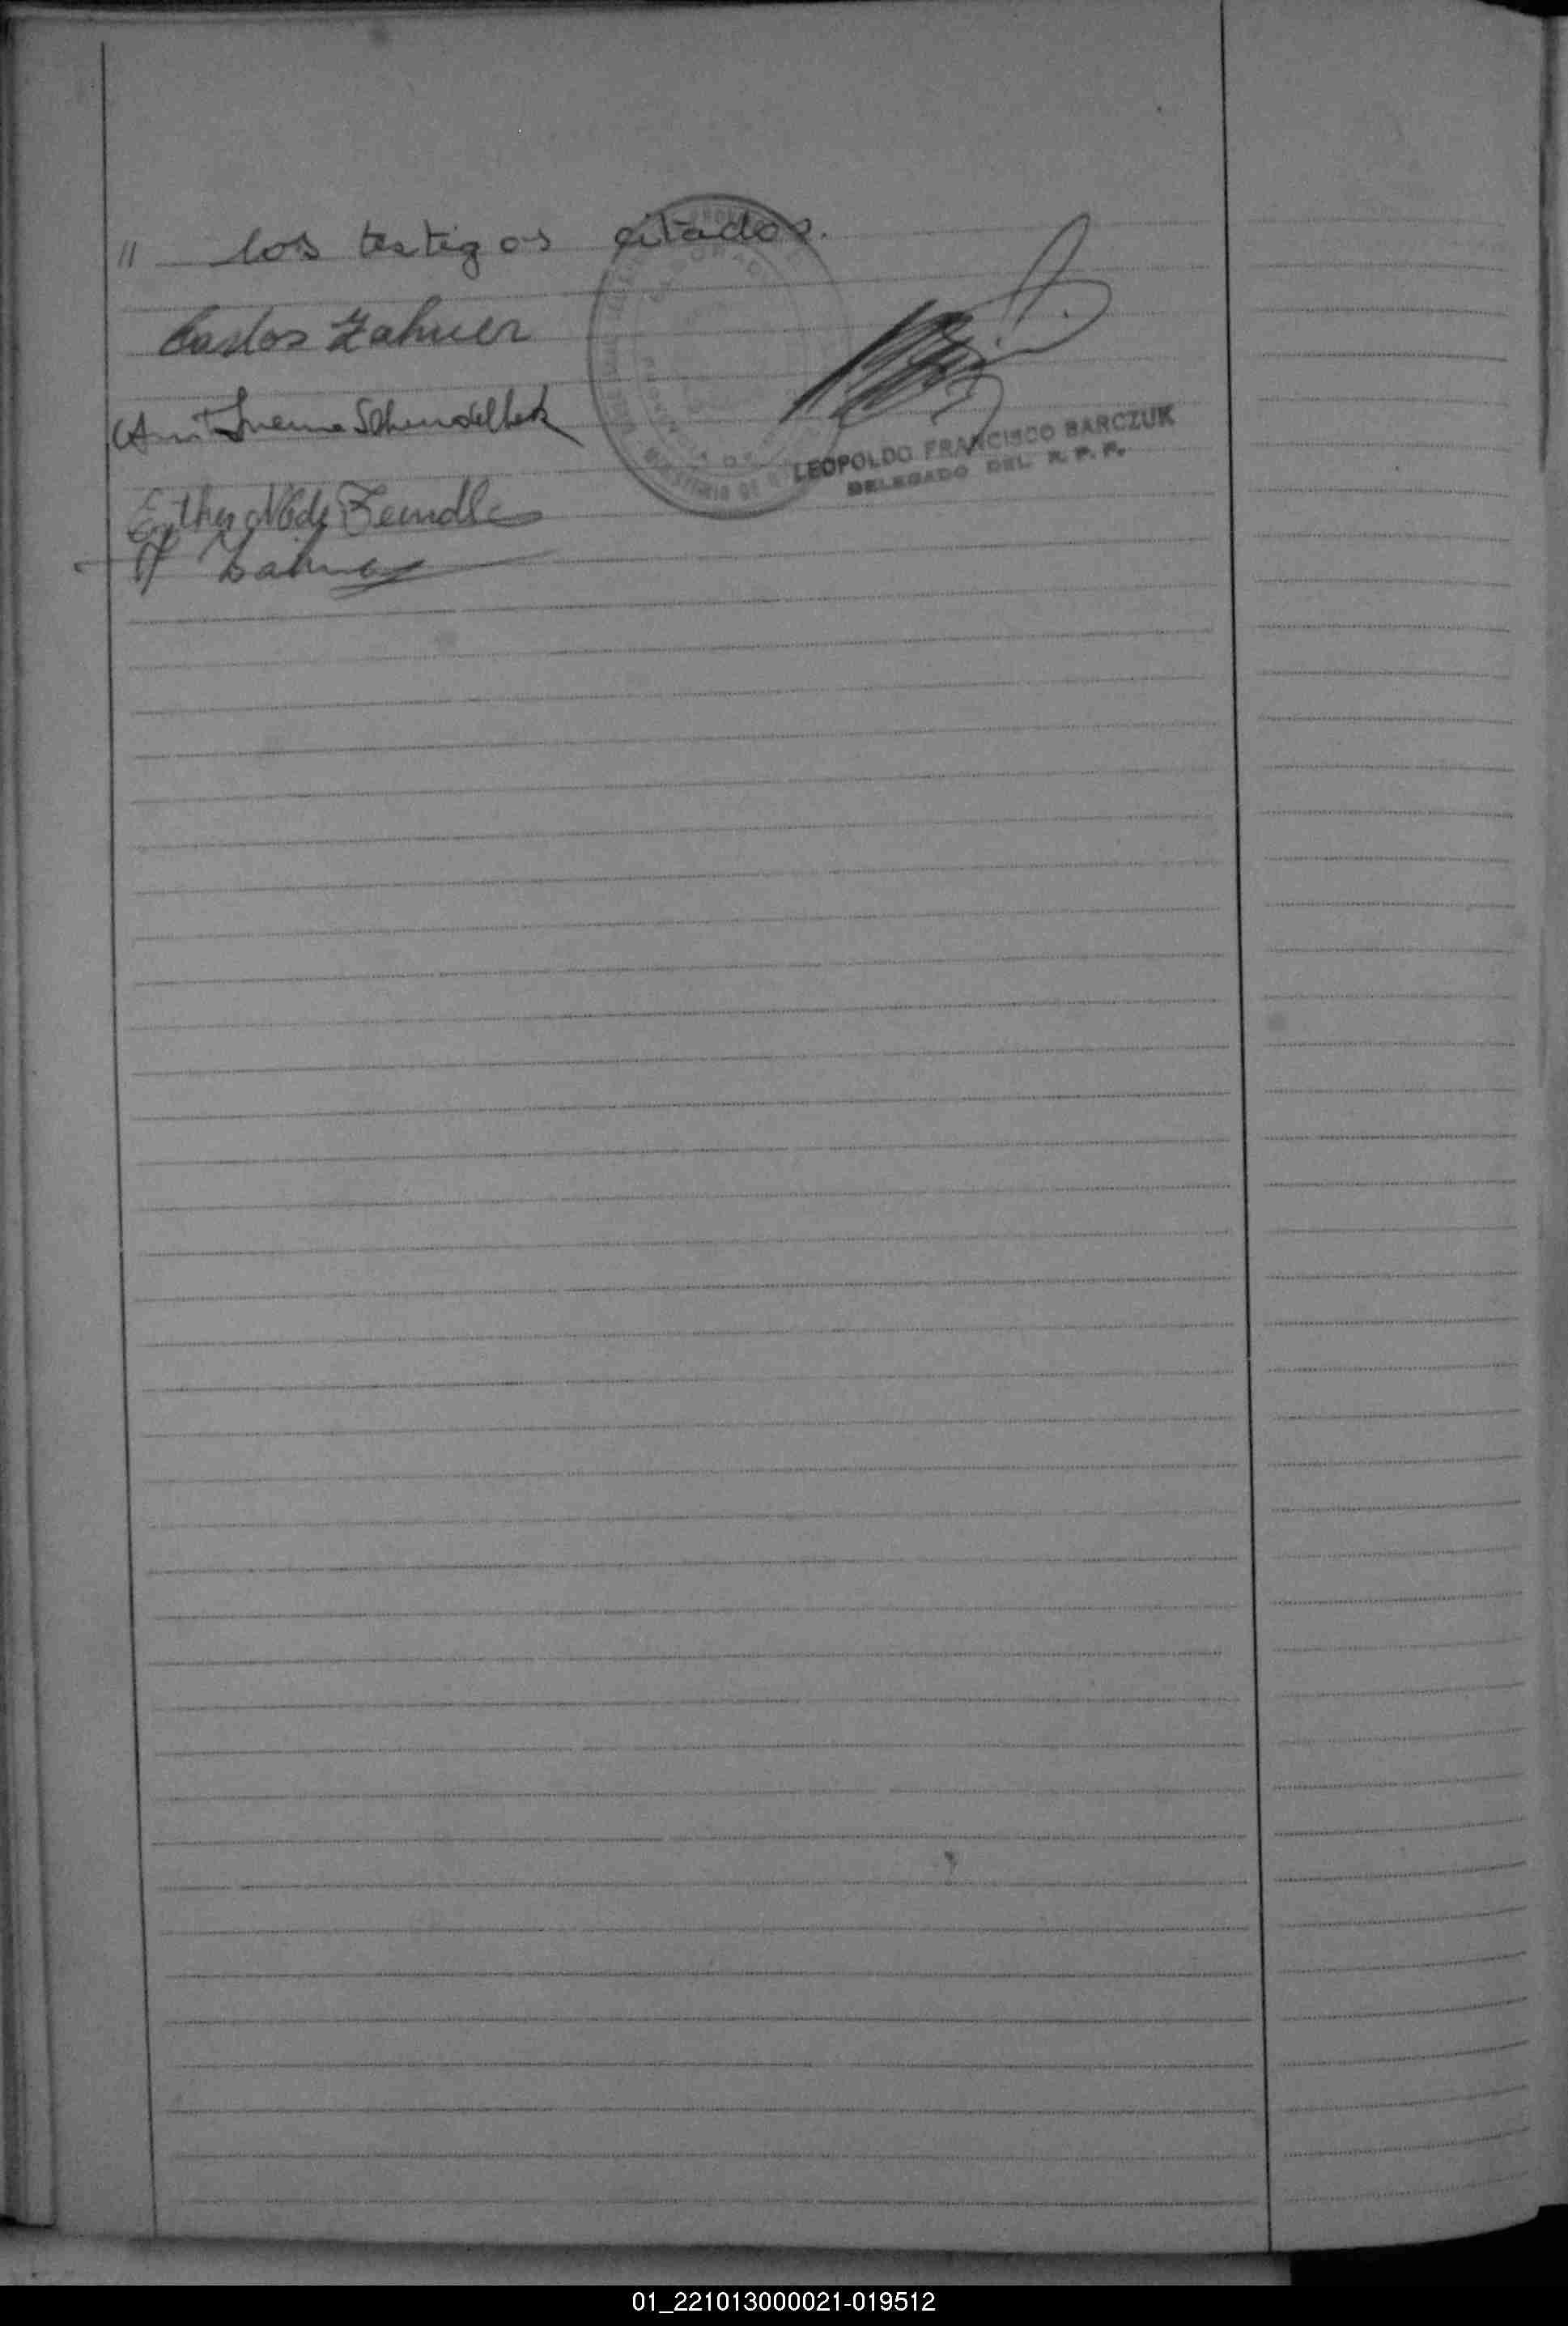 " los testigos citados.
Carlos Zahner
Schendelbek
Esther N de Zeindl
Zahner
LEOPOLDO FRANCISCO BARCZUK
DELEGADO DEL R. P. P.
01_221013000021-019512